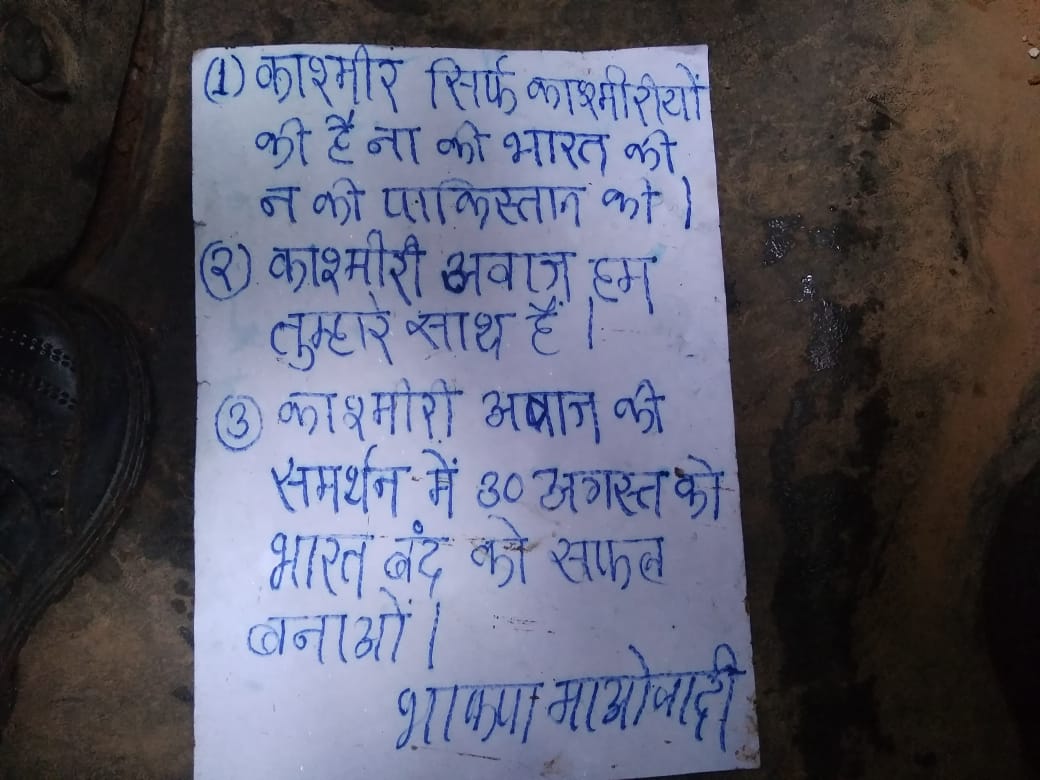 (1) काश्मीर सिर्फ काश्मीरीयों
की है ना की भारत की
न की पाकिस्तान की।
(२) काश्मीरी अवाज हम
तुम्हारे साथ हैं।
(3) काश्मीरी अवाज की
समर्थन में 30 अगस्त को
भारत बंद को सफल
बनाओं।
भाकपा माओवादी